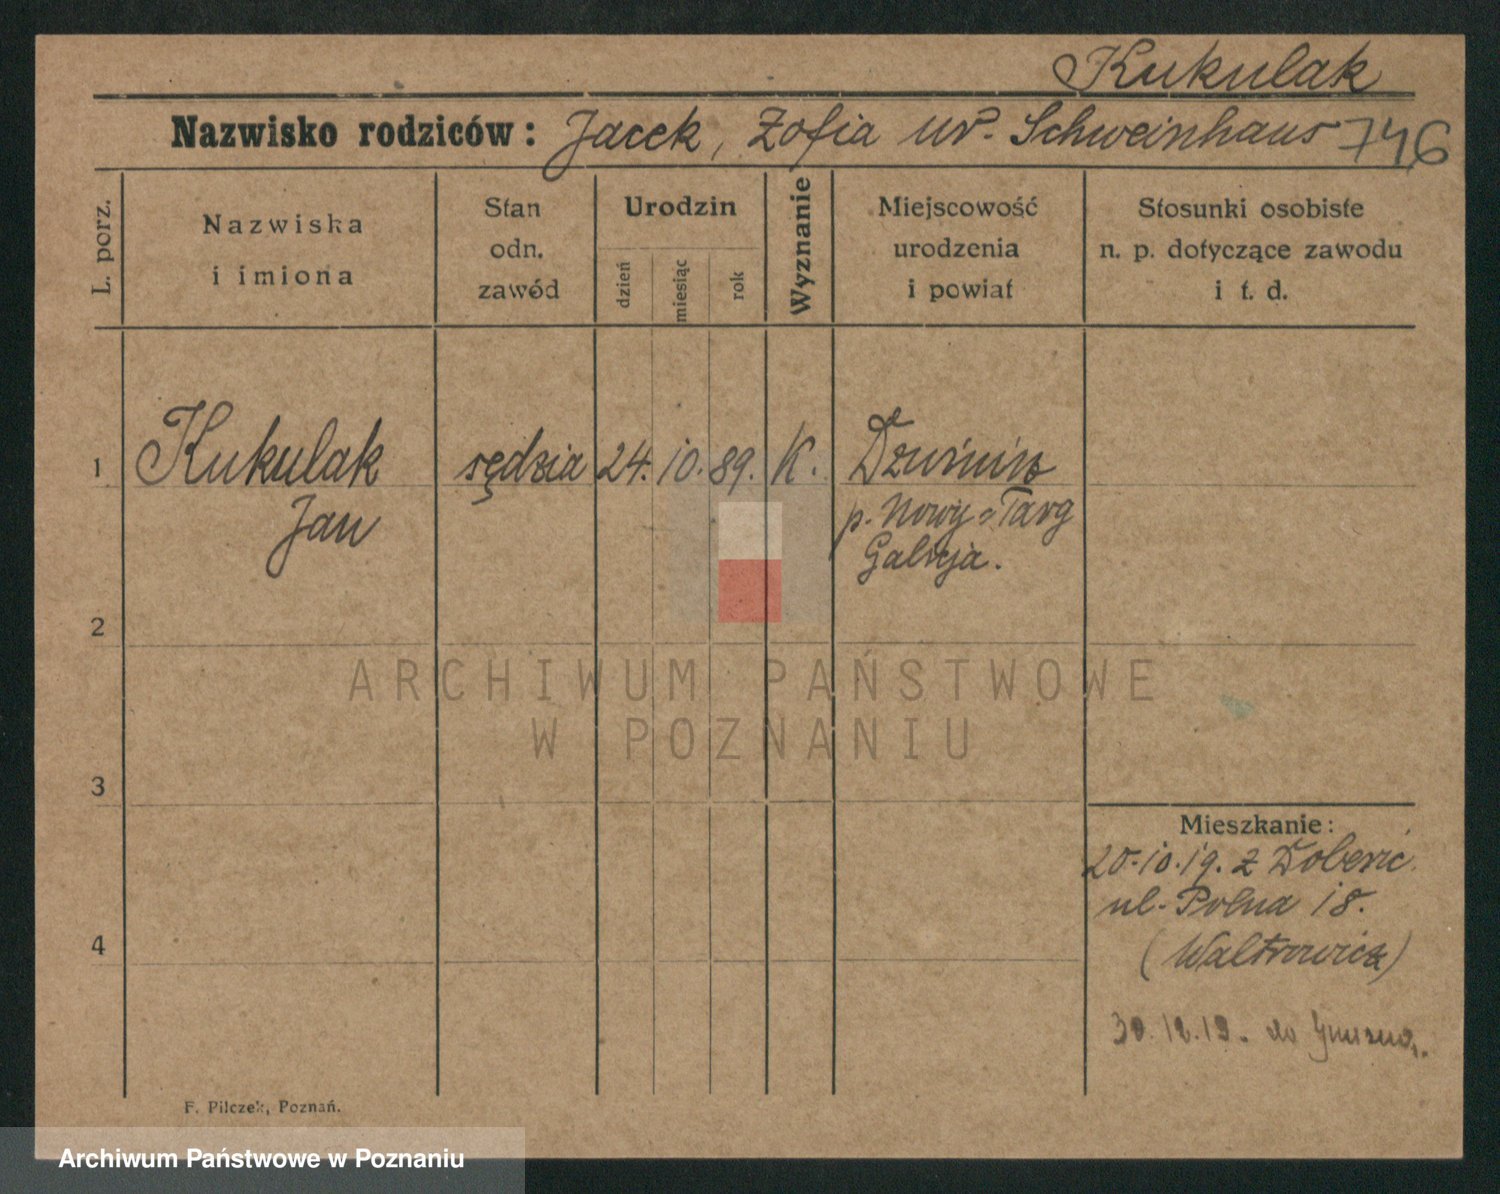 Kukulak
Nazwisko rodziców: Jacek, Zofia ur. Schweinhaus 746
L. porz.
Nazwiska
i imiona
Stan
odn.
zawód
Urodzin
dzień
miesiąc
rok
Wyznanie
Miejscowość
urodzenia
i powiat
Stosunki osobiste
n. p. dotyczące zawodu
i t. d.
1 Kukulak sędzia 24. 10. 89. K.
Jan
p. Nowy-Targ
Galicja.
2
ARCHIWUM PAŃSTWOWE
W POZNANIU
3
Mieszkanie:
20.10.19. z
ul. Polna 18.
4
30.12.19. do
F. Pilczek, Poznań.
Archiwum Państwowe w Poznaniu